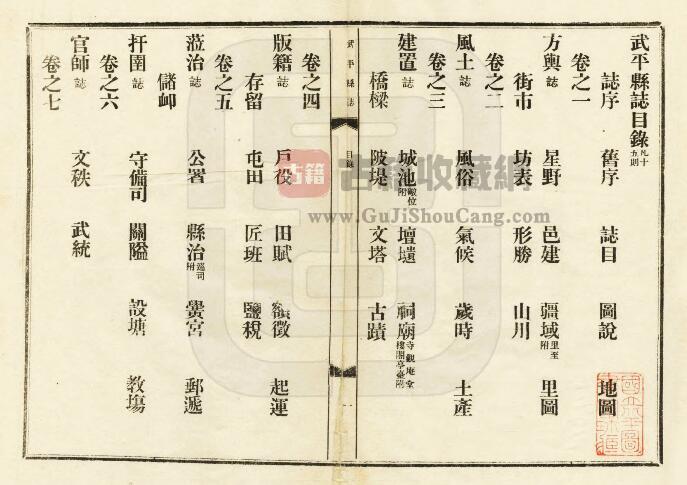 武平縣誌目錄 凡十五則
誌序 舊序 誌目 圖說 地圖
卷之一
方輿誌 星野 邑建 疆域 里至附 里圖
街市 坊表 形勝 山川
卷之二
風土誌 風俗 氣候 歲時 土產
卷之三
建置誌 城池 附 壇壝 祠廟 寺觀庵堂樓閣亭臺附
橋樑 陂堤 文塔 古蹟
武平縣誌 目錄 一
卷之四
版籍誌 戶役 田賦 額徵 起運
存留 屯田 匠班 鹽稅
卷之五
蒞治誌 公署 縣治 巡司附 黌宮 郵遞
儲卹
扞圉誌 守備司 關隘 設塘 教場
卷之六
官師誌 文秩 武統
卷之七
古籍
古籍收藏網
www.GuJiShouCang.com